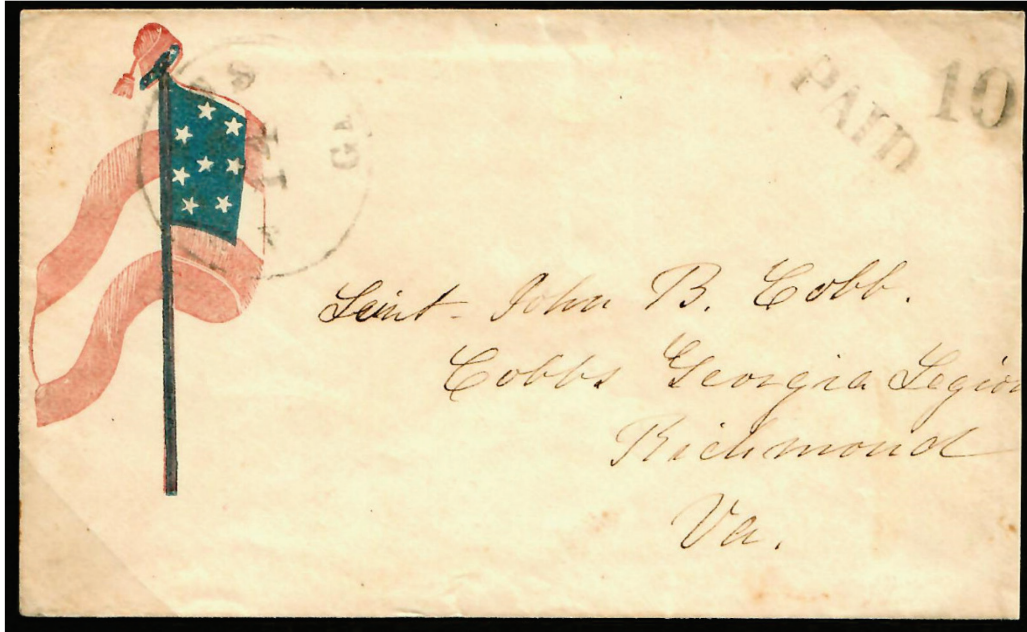 PAID 10
14
GA
Leint John B. Cobb.
Cobbs Georgia Legion
Richmond
Va.